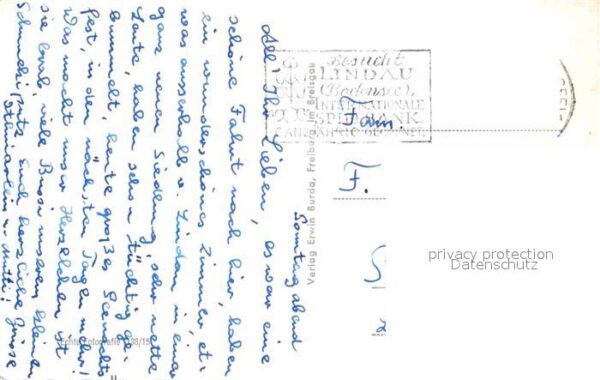 Sonntag abend
All' Ihr Lieben, es war eine
schöne Fahrt nach hier, haben
ein wunderschönes Zimmer, et=
was ausserhalb v. Lindau in einer
ganz neuen Siedlung, sehr nette
Leute, haben schon tüchtig ge=
bummelt, heute großes Seenachts=
fest, in den nächsten Tagen mehr!
Was macht unser Herzelchen ist
sie brav, viele Bussi unserem kleinen
Schnucki, putz. Euch herzliche Grüsse
Mutti!
Besucht
LINDAU
(Bodensee)
INTERNATIONALE
SPIELBANK
GANZJÄHRIG GEÖFFNET
Fam
F.
Verlag Erwin Burda, Freiburg im Breisgau
Echte Fotografie
privacy protection
Datenschutz